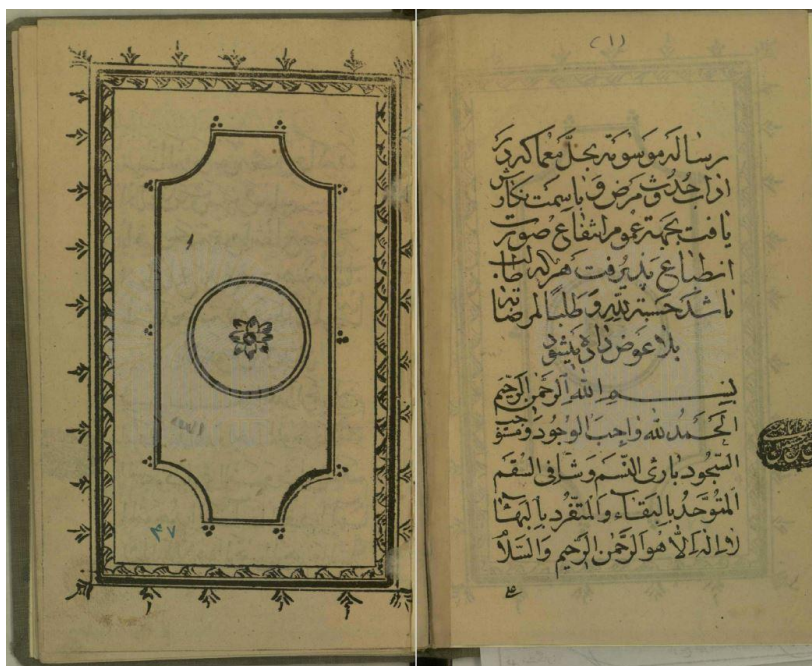 (۱)
رساله موسومة بحل معما که در
اذات حدوث مرض وبا سمت نگارش
یافت بجهة عموم انتفاع صورت
انطباع پذیرفت هرکه طالب
باشد حسبة لله و طلباً لمرضاته
بلا عوض داده میشود
بسم الله الرحمن الرحیم
الحمد لله واجب الوجود و
السجود بارئ النسم و شافی السقم
المتوحد بالبقاء والمتفرد بالبهاء
لا اله الا هو الرحمن الرحیم والسلا
۴۷